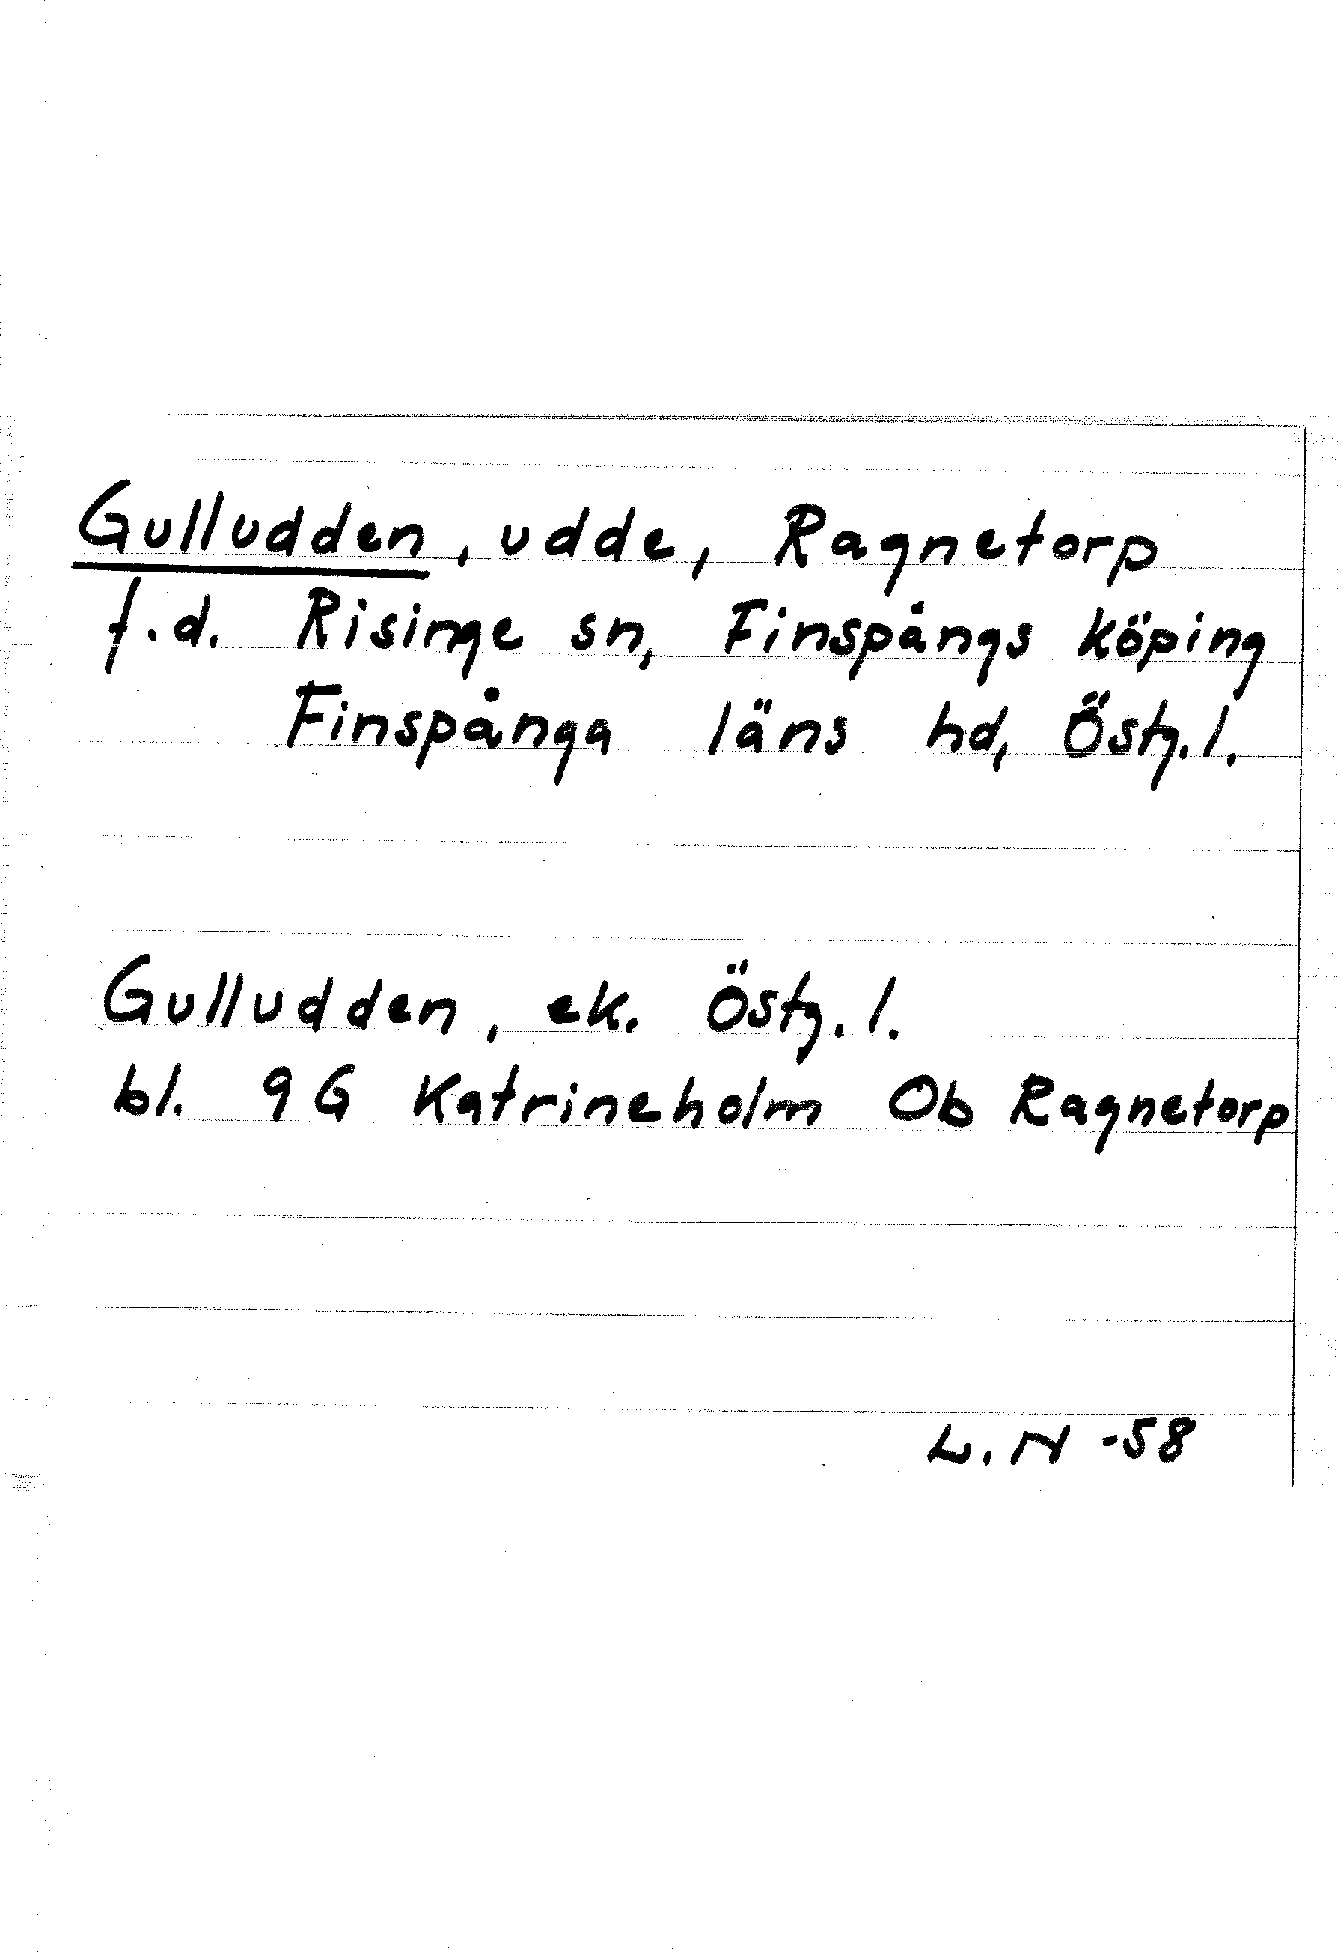 Gulludden, udde, Ragnetorp
f.d. Risinge sn, Finspångs köping
Finspånga läns hd, Östg.l.
Gulludden, ek. Östg.l.
bl. 9G Katrineholm Ob Ragnetorp
L.N -58